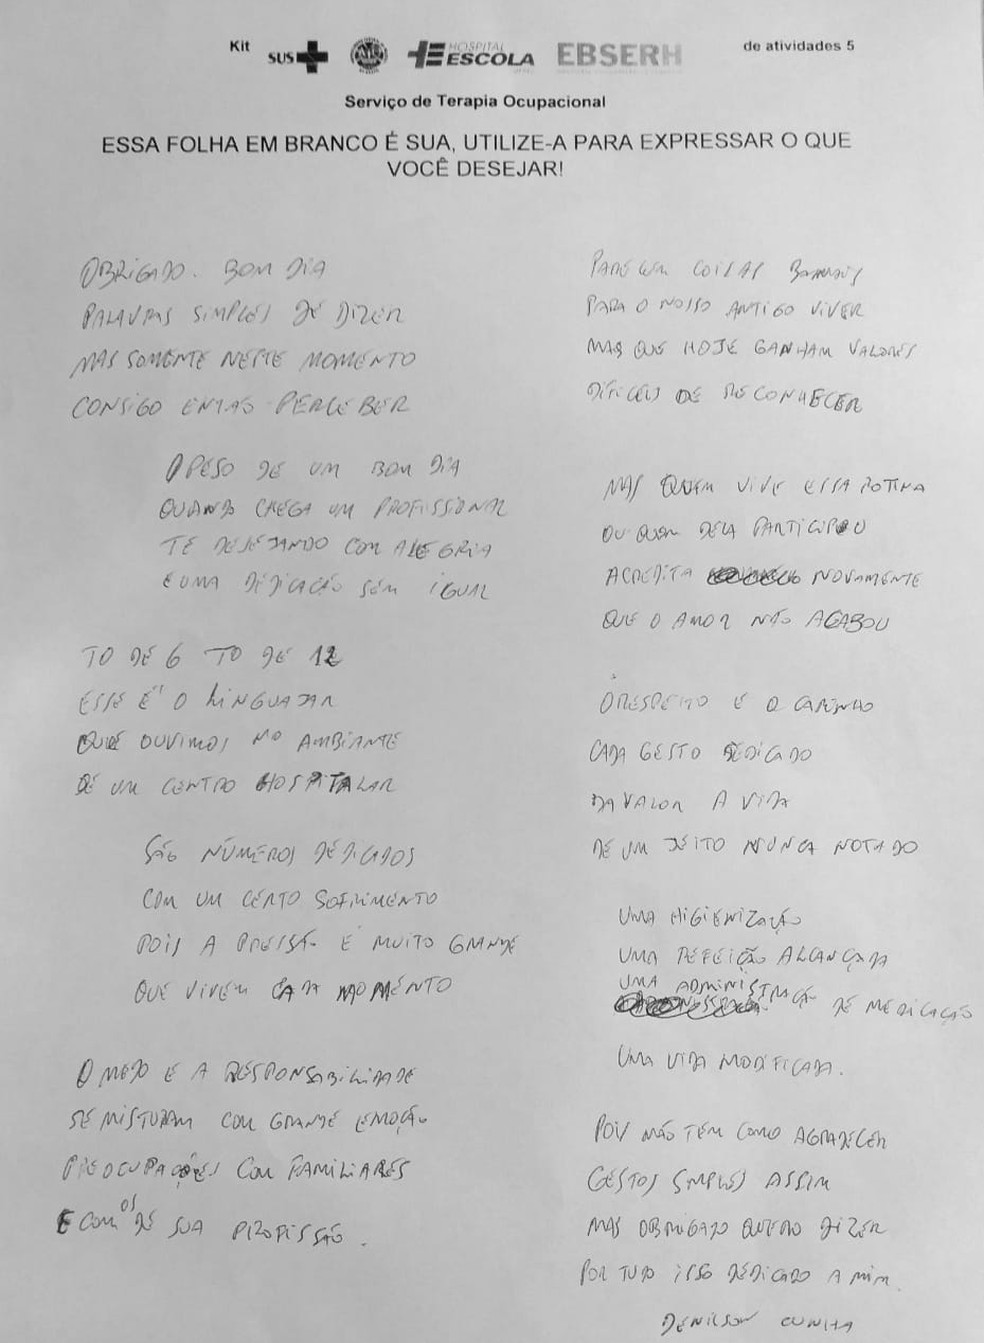 Kit
SUS
HOSPITAL
ESCOLA
EBSERH
de atividades 5
Serviço de Terapia Ocupacional
ESSA FOLHA EM BRANCO É SUA, UTILIZE-A PARA EXPRESSAR O QUE
VOCÊ DESEJAR!
OBRIGADO. BOM DIA
PALAVRAS SIMPLES DE DIZER
MAS SOMENTE NESTE MOMENTO
CONSIGO ENTÃO PERCEBER
O PESO DE UM BOM DIA
QUANDO CHEGA UM PROFISSIONAL
TE DESEJANDO COM ALEGRIA
E UMA DEDICAÇÃO SEM IGUAL
TO DE 6 TO DE 12
ESSE É O LINGUAJAR
QUE OUVIMOS NO AMBIANTE
DE UM CENTRO HOSPITALAR
SÃO NÚMEROS DEDICADOS
COM UM CERTO SOFRIMENTO
POIS A PRESSÃO E MUITO GRANDE
QUE VIVEM CADA MOMENTO
O MEDO E A RESPONSABILIDADE
SE MISTURAM COM GRANDE EMOÇÃO
PREOCUPAÇÕES COM FAMILIARES
E COM OS DE SUA PROFISSÃO.
PARECEM COISAS BANAIS
PARA O NOSSO ANTIGO VIVER
MAS QUE HOJE GANHAM VALORES
DIFICEIS DE RECONHECER
MAS QUEM VIVE ESSA ROTINA
OU QUEM DELA PARTICIPOU
ACREDITA NOVAMENTE
QUE O AMOR NÃO ACABOU
O RESPEITO E O CARINHO
CADA GESTO DEDICADO
DA VALOR A VIDA
DE UM JEITO NUNCA NOTADO
UMA HIGIENIZAÇÃO
UMA REFEIÇÃO ALCANÇADA
UMA ADMINISTRAÇÃO DE MEDICAÇÃO
UMA VIDA MODIFICADA.
POIS NÃO TEM COMO AGRADECER
GESTOS SIMPLES ASSIM
MAS OBRIGADO QUERO DIZER
POR TUDO ISSO DEDICADO A MIM.
DENILSON CUNHA